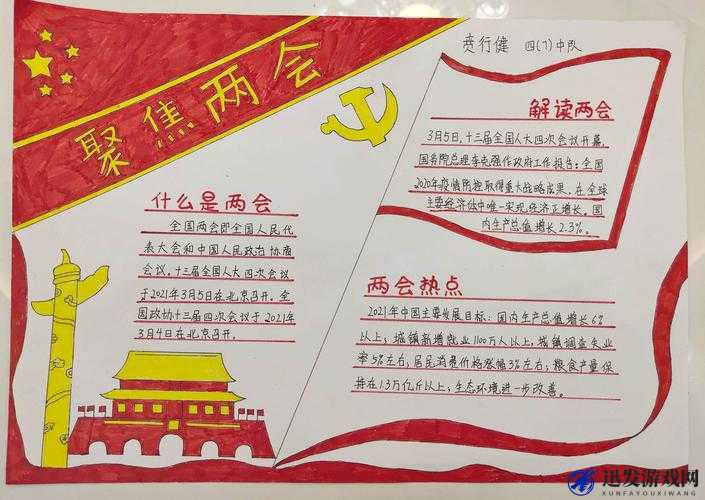 聚焦两会
贲行健 四(7)中队
解读两会
3月5日,十三届全国人大四次会议开幕,
国务院总理李克强作政府工作报告:全国
2020年疫情防控取得重大战略成果,在全球
主要经济体中唯一实现经济正增长。国
内生产总值增长2.3%。
什么是两会
全国两会即全国人民代
表大会和中国人民政治协商
会议。十三届全国人大四次会议
于2021年3月5日在北京召开。全
国政协十三届四次会议于2021年
3月4日在北京召开。
两会热点
2021年中国主要发展目标:国内生产总值增长6%
以上;城镇新增就业1100万人以上,城镇调查失业
率5%左右;居民消费价格涨幅3%左右;粮食产量保
持在1.3万亿斤以上;生态环境进一步改善。
迅发游戏网
XUNFAYOUXIWANG